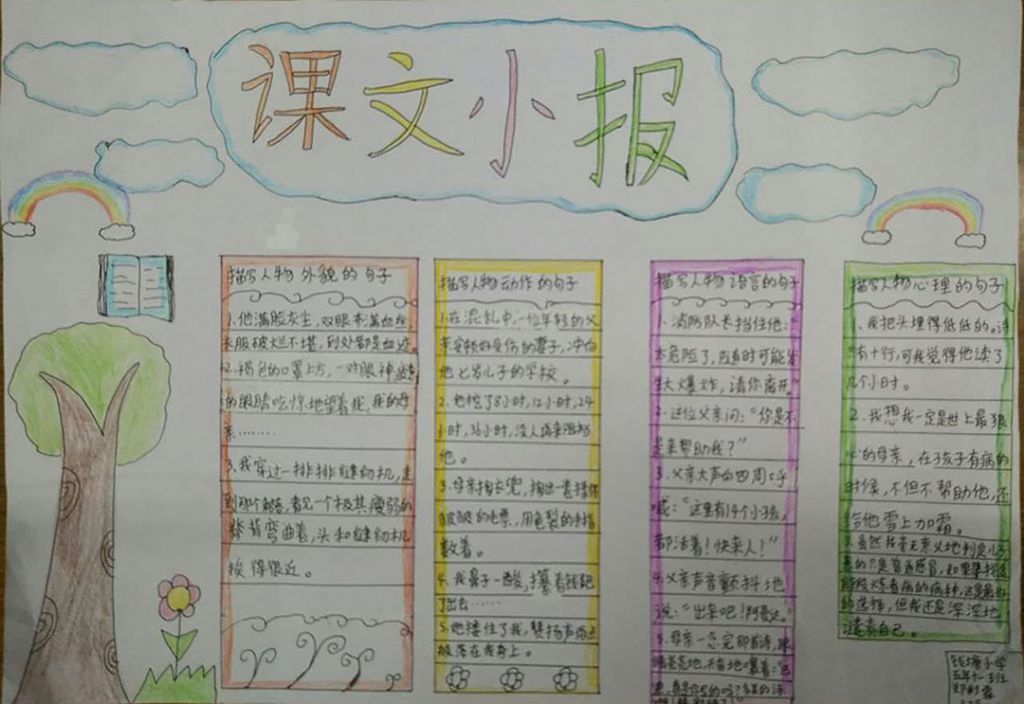 课文小报
描写人物外貌的句子
1.他满脸灰尘,双眼布满血丝,
衣服破烂不堪,到处都是血迹。
2.褐色的口罩上方,一对眼神疲惫
的眼睛吃惊地望着我,我的母
亲………
3.我穿过一排排缝纫机,走
到那个角落,看见一个极其瘦弱的
脊背弯曲着,头和缝纫机
挨得很近。
描写人物动作的句子
1.在混乱中,一位年轻的父
亲安顿好受伤的妻子,冲向
他七岁儿子的学校。
2.他挖了8小时,12小时,24
小时,36小时,没人再来阻挡
他。
3.母亲掏衣兜,掏出一卷揉得
皱皱的毛票,用龟裂的手指
数着。
4.我鼻子一酸,攥着钱跑
了出去……
5.他搂住了我,赞扬声雨点
般落在我身上。
描写人物语言的句子
1.消防队长挡住他:
太危险了,随时可能发生
大爆炸,请你离开。”
2.这位父亲问:“你是不
是来帮助我?”
3.父亲大声向四周呼
喊:“这里有14个小孩,
都活着!快来人!”
4.父亲声音颤抖地
说:“出来吧!阿曼达。”
5.母亲一念完那首诗,眼
睛亮亮地,兴奋地嚷着:“巴
迪,真是你写的吗?多美的诗
描写人物心理的句子
1.我把头埋得低低的。诗
只有十行,可我觉得他读了
几个小时。
2.我想我一定是世上最狠
心的母亲,在孩子有病的
时候,不但不帮助他,还
给他雪上加霜。
3.虽然我毫无意义地判定儿子
患的只是普通感冒,如果寻找这
所医院看病的病种,这是最好
的选择,但我还是深深地
谴责自己。
钱塘小学
五年十一班